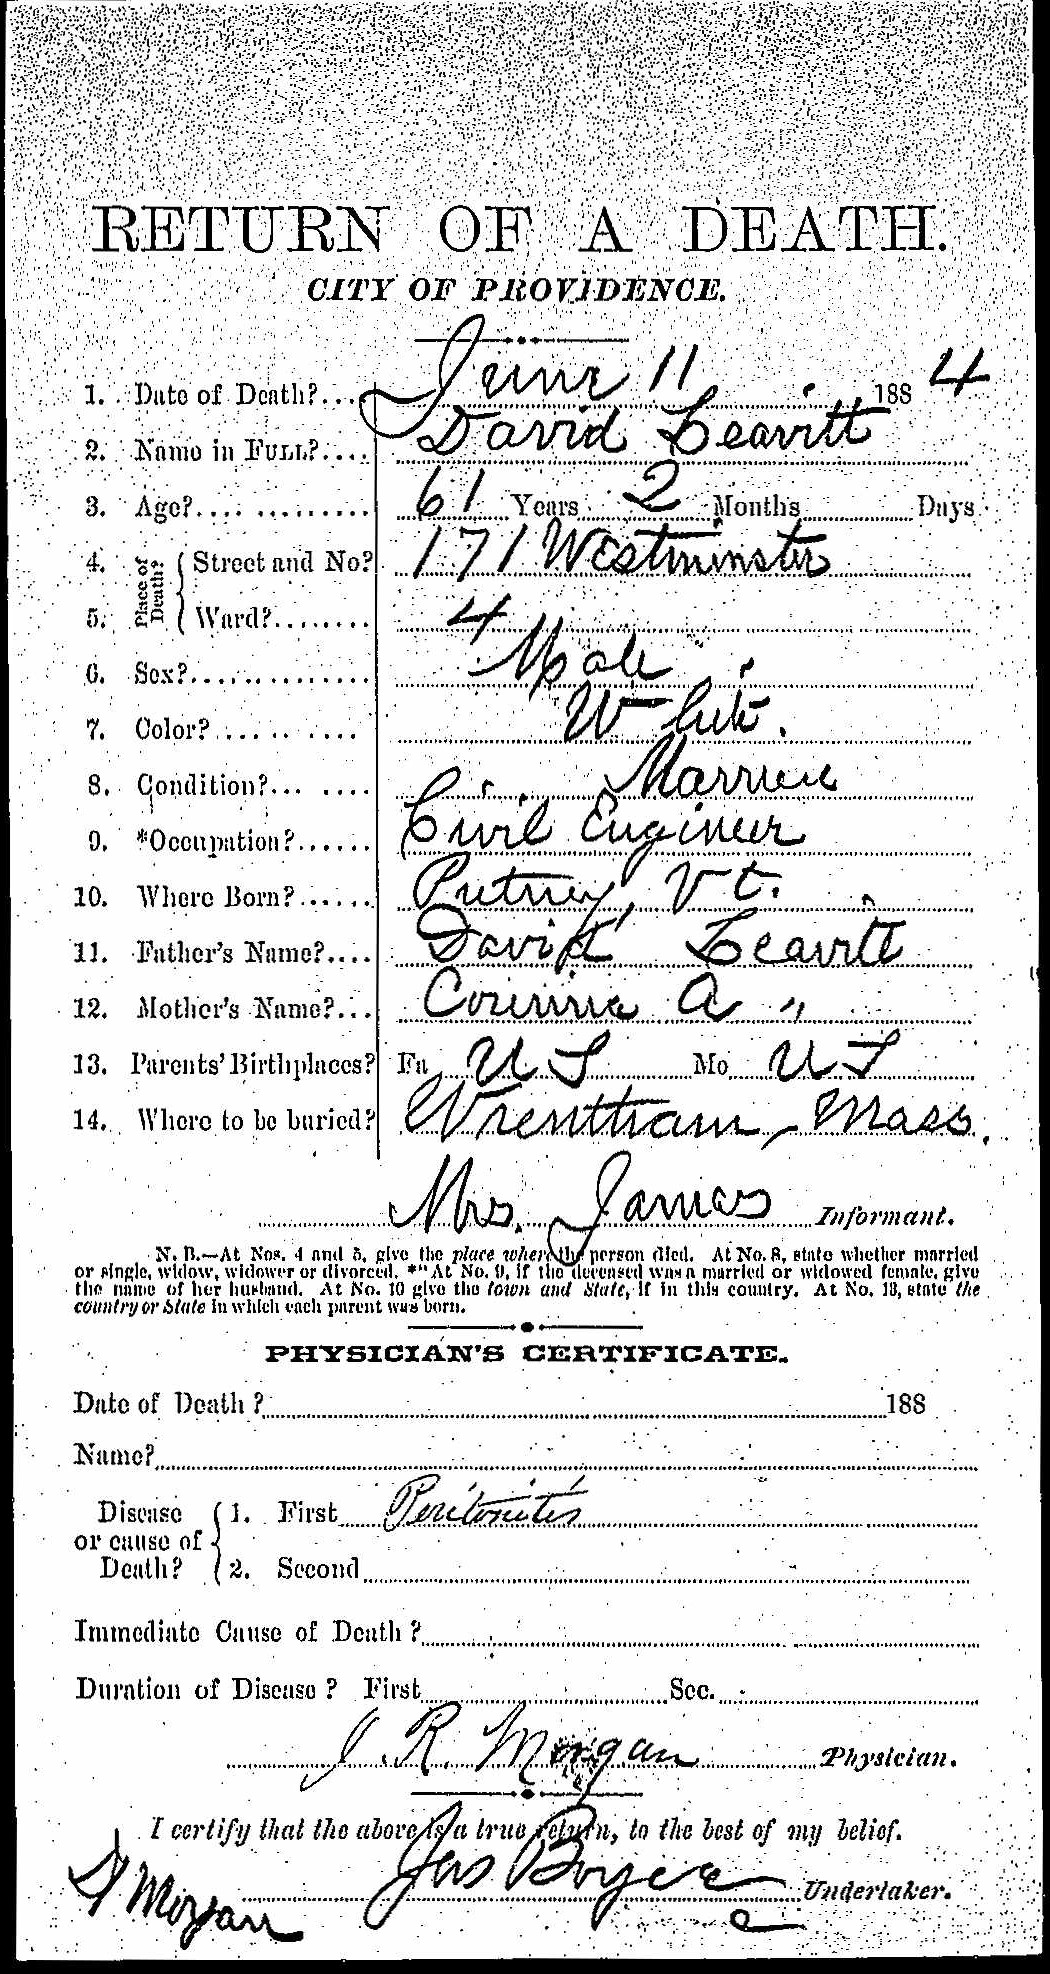 RETURN OF A DEATH.
CITY OF PROVIDENCE.
1. Date of Death?... June 11 1884
2. Name in FULL?.... David Leavitt
3. Age?.... 61 Years 2 Months Days
4. Place of Death? Street and No? 171 Westminster
5. Ward?........ 4
6. Sex?.............. Male
7. Color? ........... White.
8. Condition?... .... Married
9. *Occupation?...... Civil Engineer
10. Where Born?...... Putney, Vt.
11. Father's Name?.... David Leavitt
12. Mother's Name?... Corinna A "
13. Parents' Birthplaces? Fa U S Mo U S
14. Where to be buried? Wrentham, Mass.
Mrs. James Informant.
N. B.—At Nos. 4 and 5, give the place where the person died. At No. 8, state whether married
or single, widow, widower or divorced. *" At No. 9, if the deceased was a married or widowed female, give
the name of her husband. At No. 10 give the town and State, if in this country. At No. 13, state the
country or State in which each parent was born.
PHYSICIAN'S CERTIFICATE.
Date of Death ? 188
Name?
Disease or cause of Death? 1. First Peritonitis
2. Second
Immediate Cause of Death ?
Duration of Disease ? First Sec.
J. R. Morgan Physician.
I certify that the above is a true return, to the best of my belief.
Jas Boyce Undertaker.
Morgan